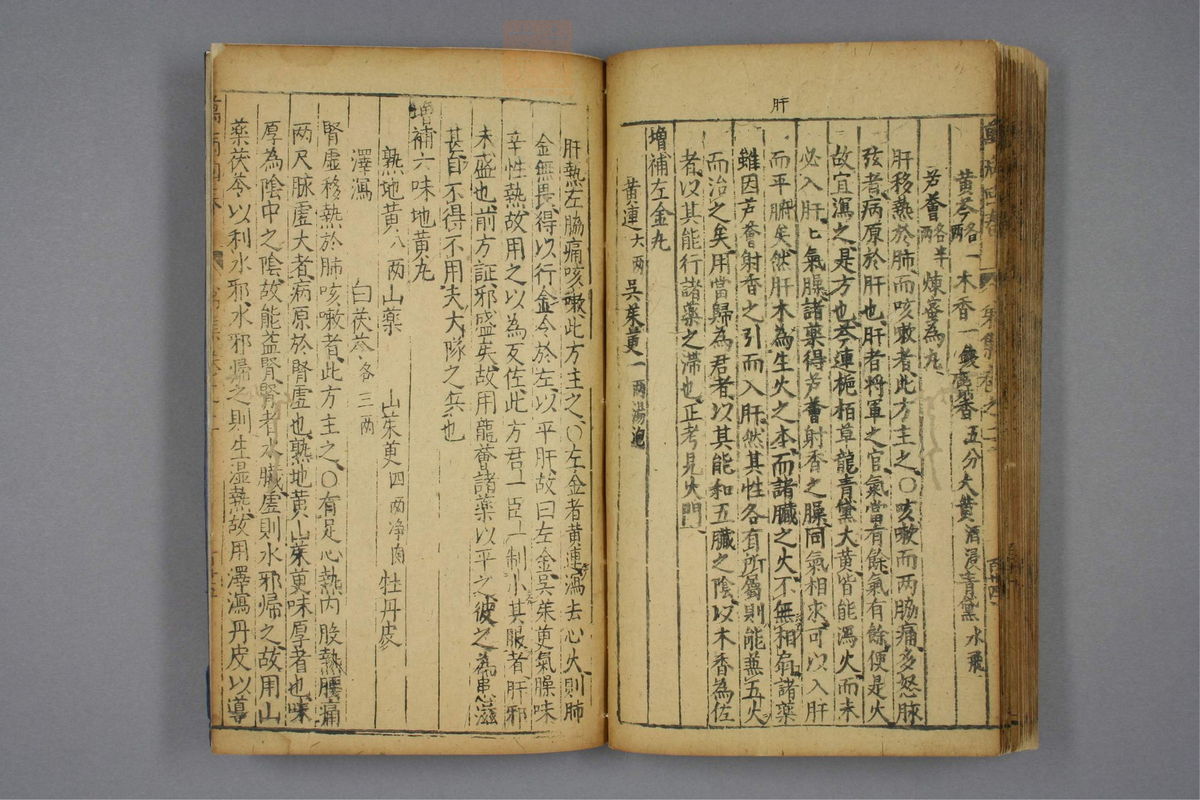 肝
黃芩各一兩 木香一錢 麝香五分 大黃酒浸 青黛水飛
芦薈各半兩 煉蜜為丸
肝移熱於肺而咳嗽者此方主之○咳嗽而两脇痛多怒脉
弦者病原於肝也肝者將軍之官氣當有餘氣有餘便是火
故宜瀉之是方也芩連梔栢草龍青黛大黃皆能瀉火而未
必入肝肝氣臊諸藥得芦薈射香之臊同氣相求可以入肝
而平脐矣然肝木為生火之本而諸臟之火不無相扇諸藥
雖因芦薈射香之引而入肝然其性各有所屬則能兼五火
而治之矣用當歸為君者以其能和五臟之陰以木香為佐
者以其能行諸藥之滯也正考見火門
增補左金丸
黃連六两 吳茱萸一两湯泡
肝熱左脇痛咳嗽此方主之○左金者黃連瀉去心火則肺
金無畏得以行金令於左以平肝故曰左金吳茱萸氣臊味
辛性熱故用之以為反佐此方君一臣一制小其服者肝邪
未盛也前方証邪盛矣故用龍薈諸藥以平之彼之為患滋
甚自不得不用夫大隊之兵也
增補六味地黃丸
熟地黃八两 山藥 山茱萸四两净肉 牡丹皮
澤瀉 白茯苓各三两
腎虛移熱於肺咳嗽者此方主之○有足心熱内股熱腰痛
两尺脉虛大者病原於腎虛也熟地黃山茱萸味厚者也味
厚為陰中之陰故能益腎腎者水臟虛則水邪歸之故用山
藥茯苓以利水邪水邪歸之則生湿熱故用澤瀉丹皮以導